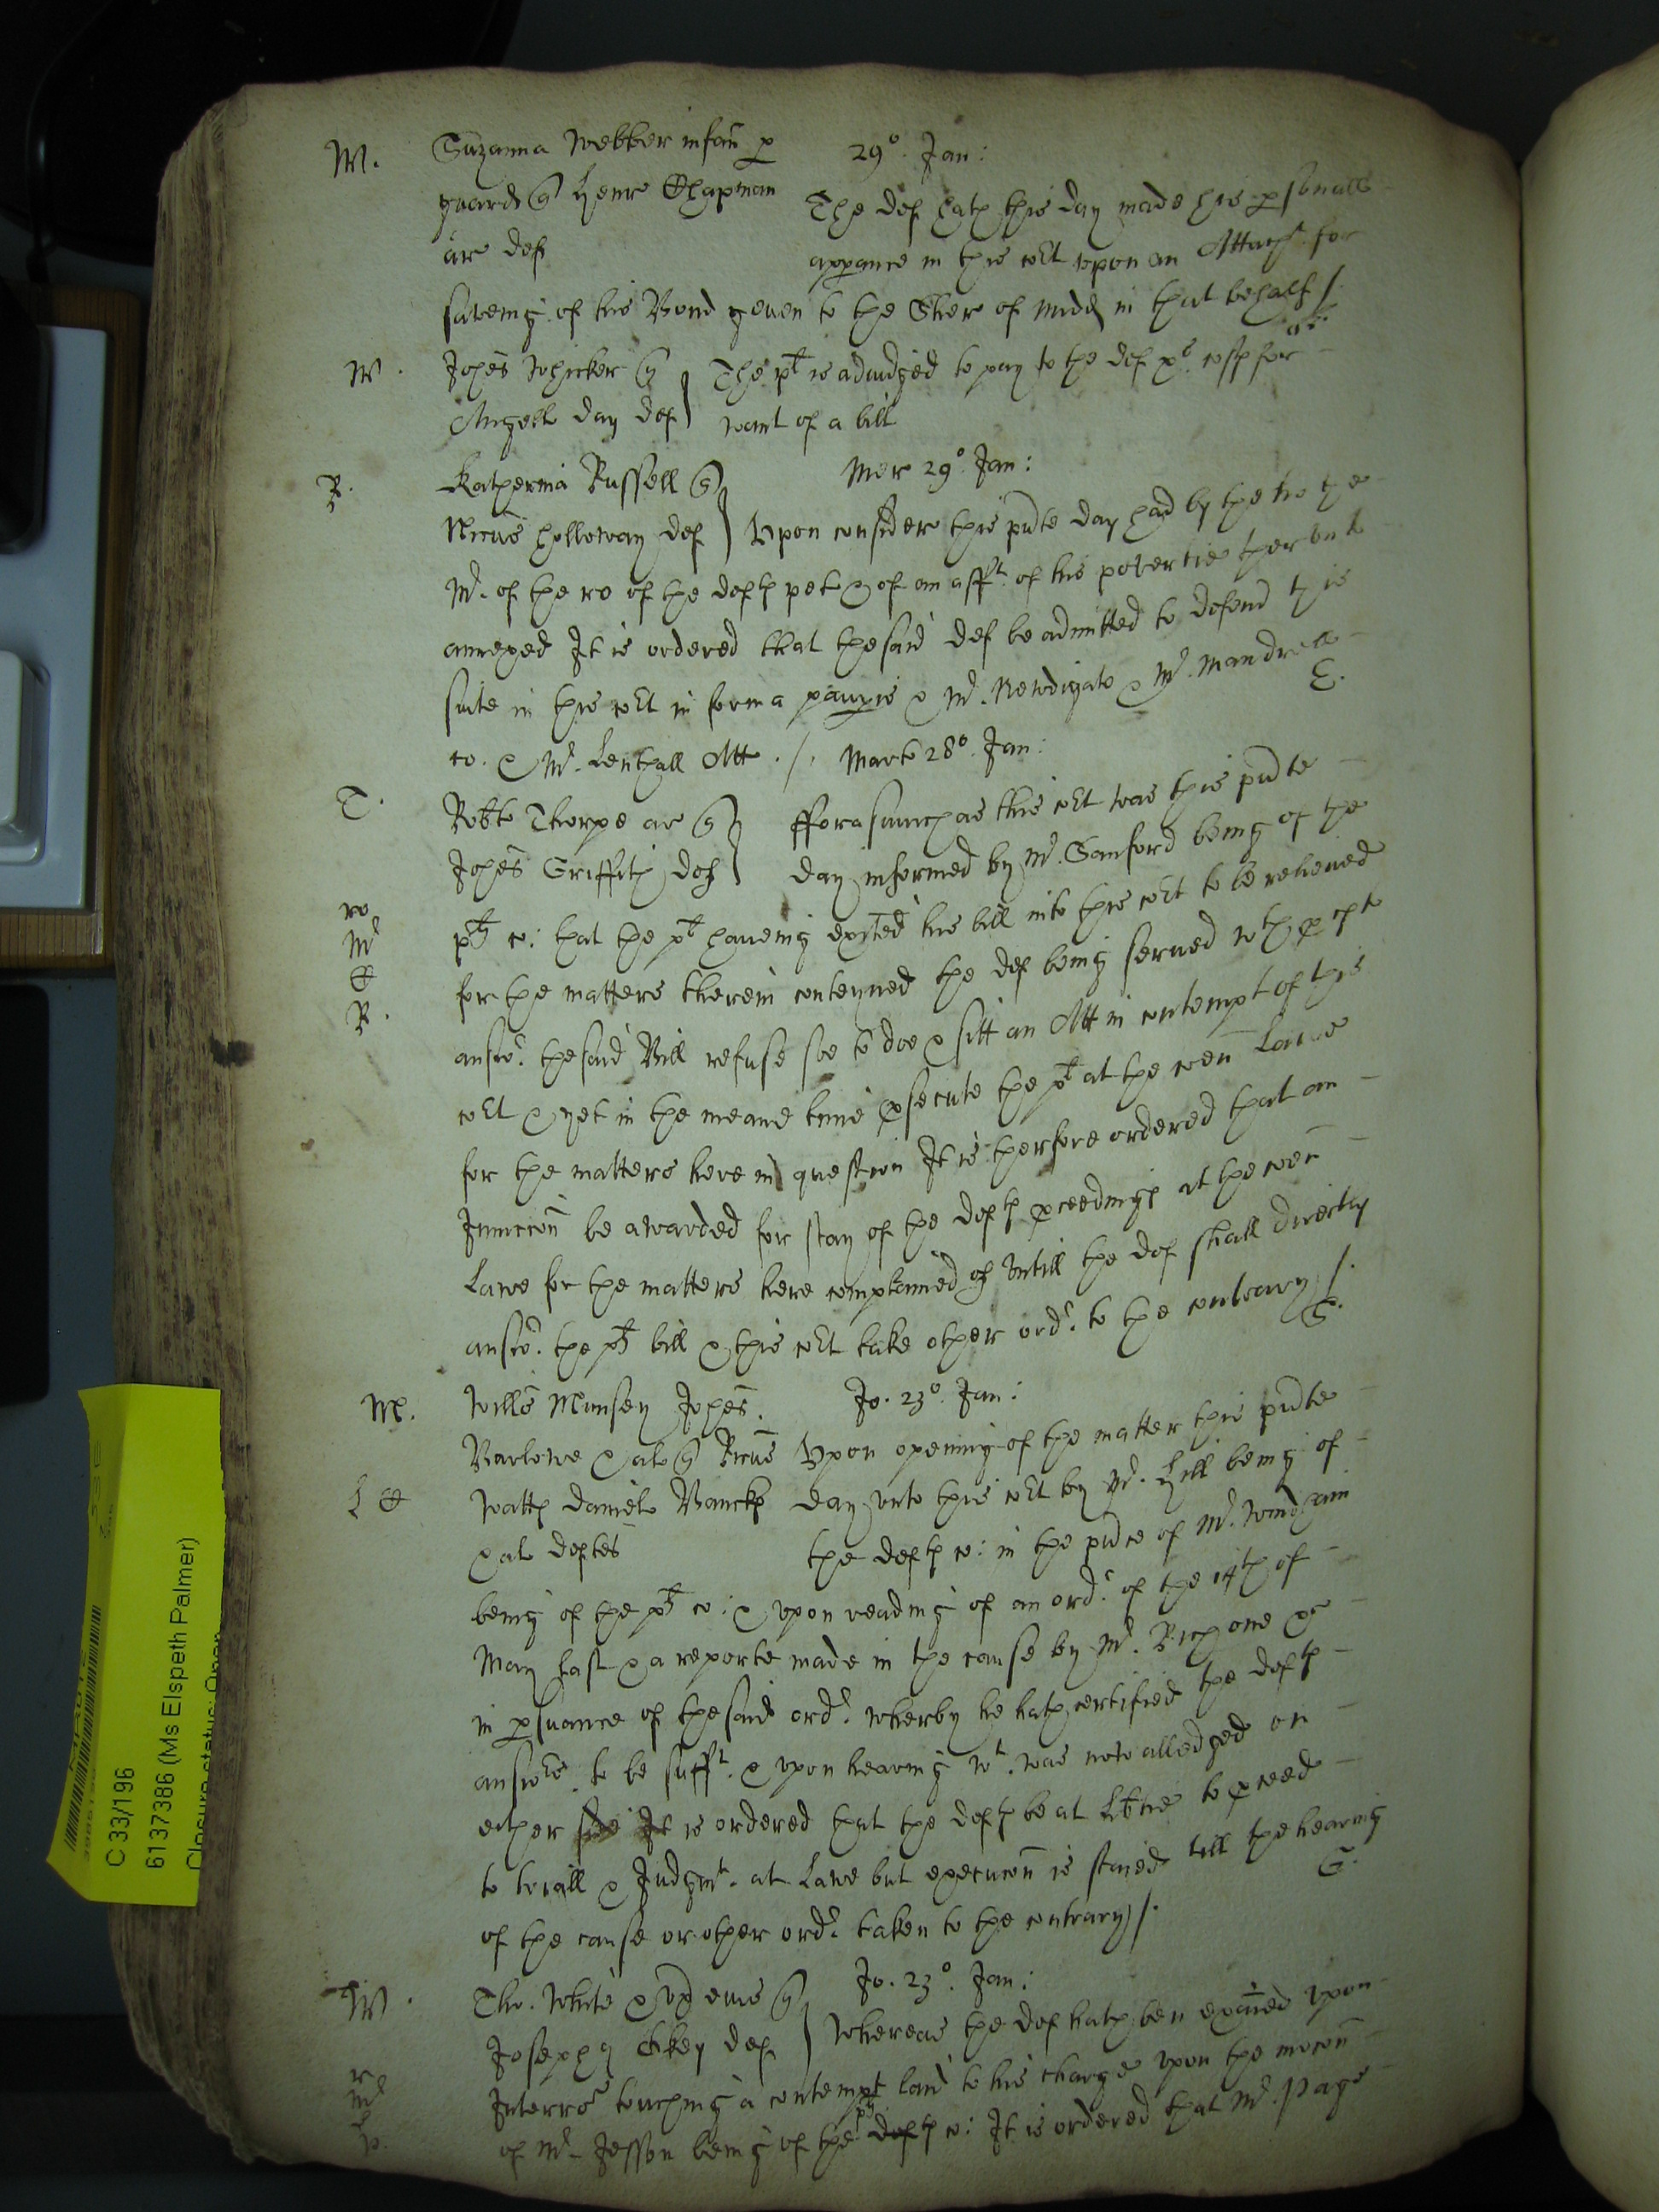 M. Suzanna Webber infan p 29o. Jan:
guard q Henr Chapman The def hath this day made his psonall
ar def apparance in this cort upon an Attachmt for
saveing of his Bond geven to the Sher of Midd in that behalf /.
W. Johes Whicker q The plt is adiudged to pay to the def xs. costs for
Angell Day def want of a bill
R. Katherina Russell q Mer 29o. Jan:
Nicus Holloway def Upon consider this pnte day had by the
Mr. of the ro of the defts pet & of an afft. of his povertie therunto
annexed It is ordered that the said def be admitted to defend this
suite in this cort in forma paupis & Mr. Newdigate & Mr. Mandrell
co. & Mr. Lenthall Att. /. Marte 28o. Jan:
T. Robte Thorpe ar q fforasmuch as this cort was this pnte
Johes Griffith def day informed by Mr. Sanford being of the
ro plts co: that the plt haveing exhited his bill into this cort to be releived
Mr for the matters therein conteyned the def being served wth pces to
R. answr. the said Bill refuse soe to doe & sitt an Att in contempt of this
cort & yet in the meane time psecute the plt at the coen Lawe
for the matters here in question It is therfore ordered that an
Iniuccon be awarded for stay of the defts pceedings at the coen
Lawe for the matters here complained of untill the def shall directly
answr. the plts bill & this cort take other ordr. to the contrary /.
M. Willus Munsey Johes. Jo. 23o. Jan:
Barlowe & al q Ricus Upon opening of the matter this pnte
Watts Daniel Bancks day unto this cort by Mr. Hill being of
& al deftes the defts co: in the pnce of Mr. Windham
being of the plts co: & upon reading of an ordr. of the 14th of
May last & a reporte made in the cause by Mr. Rich one &c
in psuance of the said ordr. wherby he hath certified the defts
answrs. to be sufft. & upon heareing wt. was now alledged on
either side It is ordered that the defts be at Libtie to pceed
to triall & Judgmt. at Lawe but execucon is staied till the hearing
of the cause or other ordr taken to the contrary /.
G.
W. Tho. White & ux eius q Jo. 23o. Jan:
Joseph def Whereas the def hath ben exaied upon
Interr touching a contempt laid to his charge upon the mocon
of Mr. Jesson being of the plts defts co: It is ordered that Mr. Page
C 33/196
6137386 (Ms Elspeth Palmer)
Closure status: Open